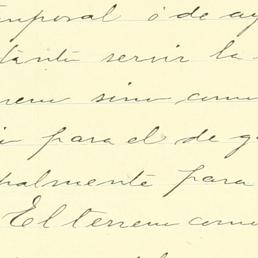 temporal ó de ay
tanto servir la
rreno sino como
para el de g
palmente para
El terreno como